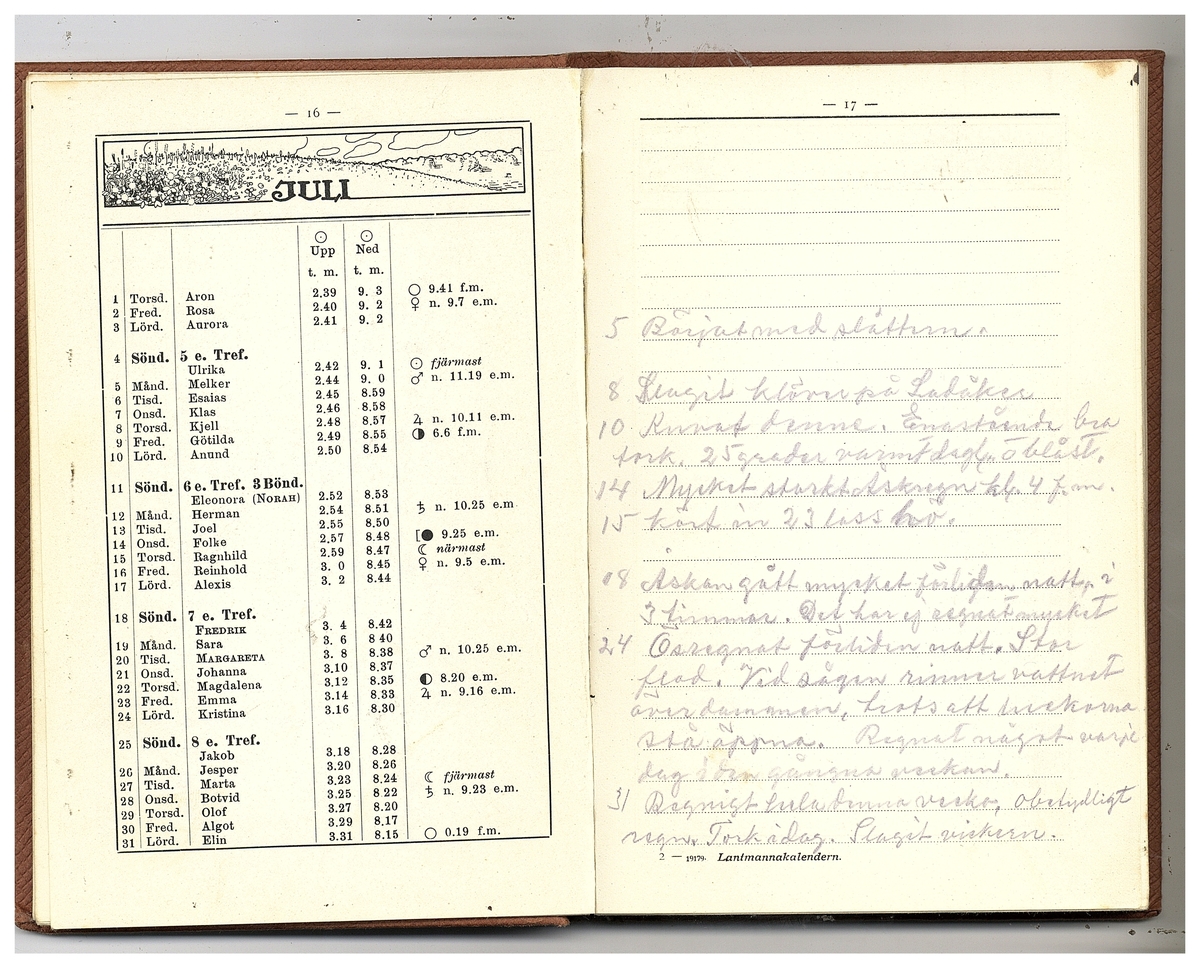 — 16 —
JULI
☉ ☉
Upp Ned
t. m. t. m.
1 Torsd. Aron 2.39 9. 3 ○ 9.41 f.m.
2 Fred. Rosa 2.40 9. 2 ♀ n. 9.7 e.m.
3 Lörd. Aurora 2.41 9. 2
4 Sönd. 5 e. Tref.
Ulrika 2.42 9. 1 ☉ fjärmast
5 Månd. Melker 2.44 9. 0 ♂ n. 11.19 e.m.
6 Tisd. Esaias 2.45 8.59
7 Onsd. Klas 2.46 8.58
8 Torsd. Kjell 2.48 8.57 ♃ n. 10.11 e.m.
9 Fred. Götilda 2.49 8.55 ◑ 6.6 f.m.
10 Lörd. Anund 2.50 8.54
11 Sönd. 6 e. Tref. 3 Bönd.
Eleonora (NORAH) 2.52 8.53
12 Månd. Herman 2.54 8.51 ♄ n. 10.25 e.m
13 Tisd. Joel 2.55 8.50
14 Onsd. Folke 2.57 8.48 [● 9.25 e.m.
15 Torsd. Ragnhild 2.59 8.47 ☾ närmast
16 Fred. Reinhold 3. 0 8.45 ♀ n. 9.5 e.m.
17 Lörd. Alexis 3. 2 8.44
18 Sönd. 7 e. Tref.
FREDRIK 3. 4 8.42
19 Månd. Sara 3. 6 8 40
20 Tisd. MARGARETA 3. 8 8.38 ♂ n. 10.25 e.m.
21 Onsd. Johanna 3.10 8.37
22 Torsd. Magdalena 3.12 8.35 ◐ 8.20 e.m.
23 Fred. Emma 3.14 8.33 ♃ n. 9.16 e.m.
24 Lörd. Kristina 3.16 8.30
25 Sönd. 8 e. Tref.
Jakob 3.18 8.28
26 Månd. Jesper 3.20 8.26
27 Tisd. Marta 3.23 8.24 ☾ fjärmast
28 Onsd. Botvid 3.25 8 22 ♄ n. 9.23 e.m.
29 Torsd. Olof 3.27 8.20
30 Fred. Algot 3.29 8.17
31 Lörd. Elin 3.31 8.15 ○ 0.19 f.m.
— 17 —
5 Börjat med slåttern.
8 Slagit klöver på Ladåker
10 denne. Enastående bra
tork. 25 grader varmt dagl. o blåst.
14 Mycket starkt åskregn kl. 4 f.m.
15 kört in 23 lass hö.
18 Åskan gått mycket förliden natt, i
3 timmar. Det har ej regnat mycket
24 Ösregnat förliden natt. Stor
flod. Vid sågen rinner vattnet
över dammen, trots att luckorna
stå öppna. Regnat något varje
dag i den gångna veckan.
31 Regnigt hela denna vecka, obetydligt
regn. Tork idag. Slagit vickern.
2 — 19179. Lantmannakalendern.